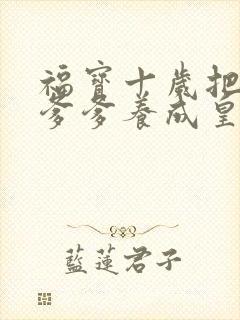 福寶十歲把
爹爹養成皇
藍蓮君子